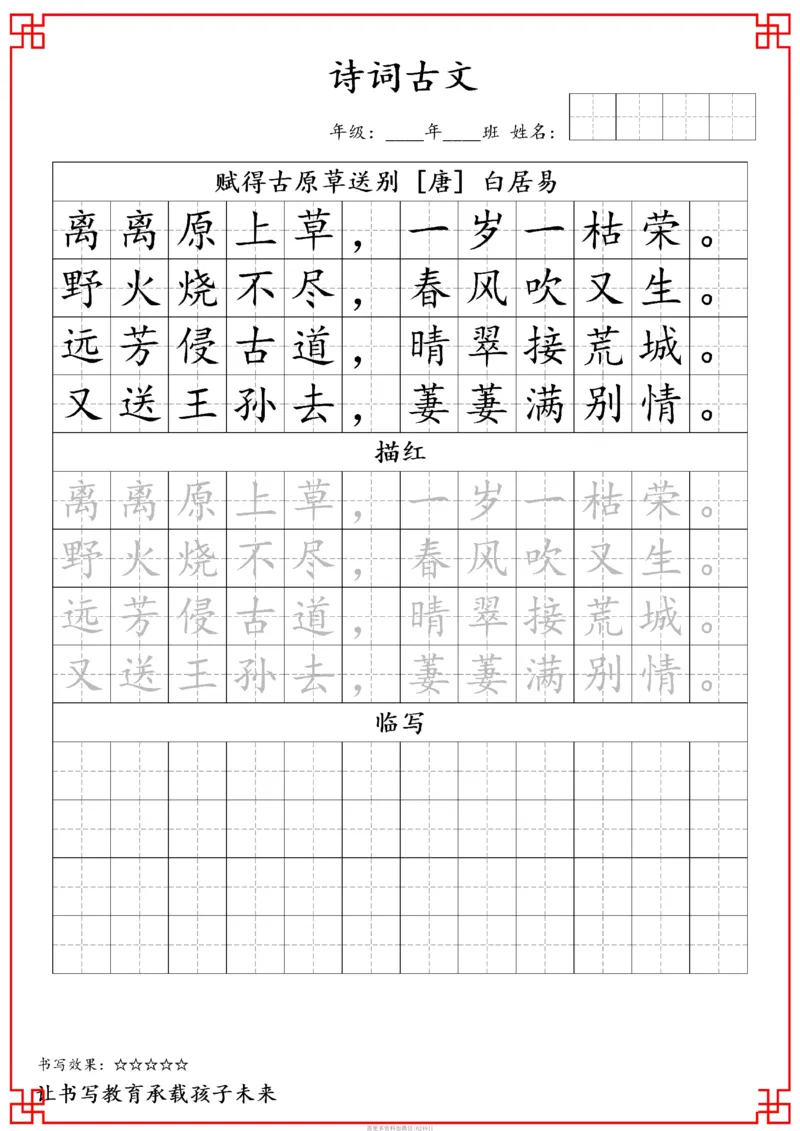 诗词古文
年级：____年____班 姓名：
赋得古原草送别 [唐] 白居易
离离原上草，一岁一枯荣。
野火烧不尽，春风吹又生。
远芳侵古道，晴翠接荒城。
又送王孙去，萋萋满别情。
描红
离离原上草，一岁一枯荣。
野火烧不尽，春风吹又生。
远芳侵古道，晴翠接荒城。
又送王孙去，萋萋满别情。
临写
书写效果：☆☆☆☆☆
让书写教育承载孩子未来